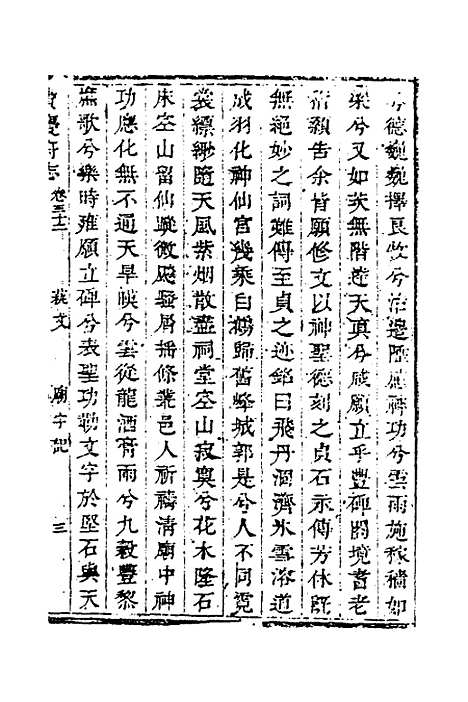 兮德巍巍擇良牧兮治邊陲雄神功兮雲雨施稼穡如
梁兮又如茨無階達天真兮咸願立乎豐碑闔境耆老
稽顙告余皆願修文以神聖德刻之貞石永傳芳休旣
無絕妙之詞難傳至貞之迹銘曰飛丹洞濟氷雪溶道
成羽化神仙宮幾乘白鶴歸舊峰城郭是兮人不同霓
裳縹緲隨天風紫烟散盡祠堂空山寂寞兮花木隆石
床空山留仙蹤微飈發屑搖條叢邑人祈禱清廟中神
功應化無不通天旱暵兮雲從龍酒膏雨兮九穀豐黎
庶歌兮樂時雍願立碑兮表聖功勒文字於堅石與天
慶府志 卷三十二 藝文 廟宇記 三